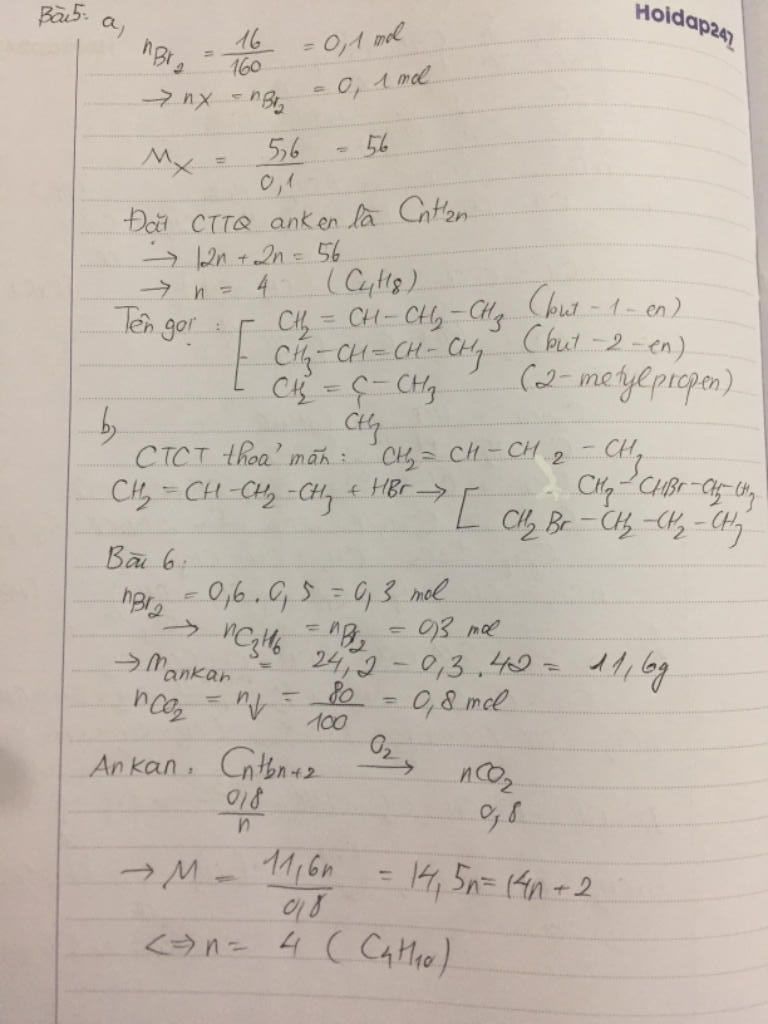 Hoidap247
Bài 5: a,
nBr2 = 16/160 = 0,1 mol
→ nX = nBr2 = 0,1 mol
MX = 5,6/0,1 = 56
Đặt CTTQ anken là CnH2n
→ 12n + 2n = 56
→ n = 4 (C4H8)
Tên gọi : [ CH2 = CH - CH2 - CH3 (but - 1 - en)
CH3 - CH = CH - CH3 (but - 2 - en)
CH2 = C - CH3 (2 - metylpropen)
CH3
b,
CTCT thoả mãn: CH2 = CH - CH2 - CH3
CH2 = CH - CH2 - CH3 + HBr → [ CH3 - CHBr - CH2 - CH3
CH2Br - CH2 - CH2 - CH3
Bài 6:
nBr2 = 0,6 . 0,5 = 0,3 mol
→ nC3H6 = nBr2 = 0,3 mol
→ mankan = 24,2 - 0,3 . 42 = 11,6g
nCO2 = n↓ = 80/100 = 0,8 mol
Ankan: CnH2n+2 O2→ nCO2
0,8/n 0,8
→ M = 11,6n/0,8 = 14,5n = 14n + 2
<=> n = 4 (C4H10)